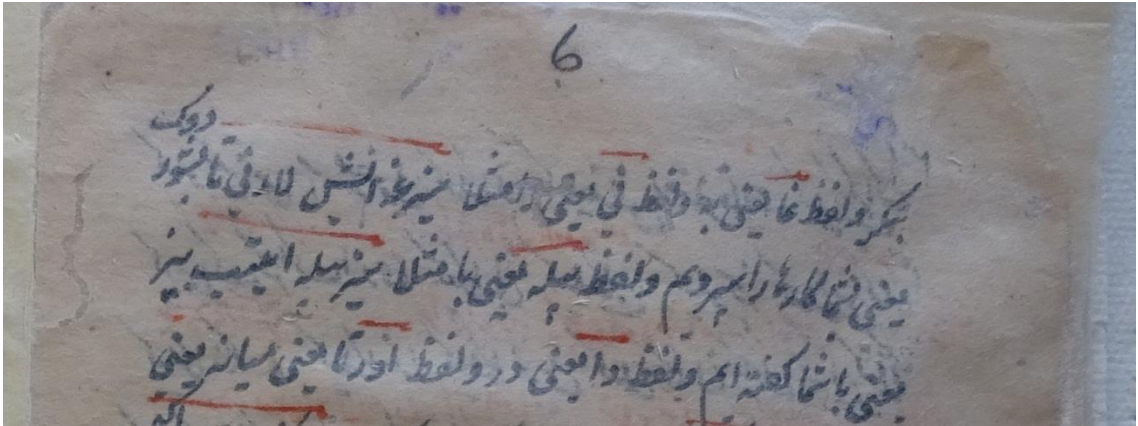 6
دوک
بنگر و لفظ غا یعنی به و لفظ نی یعنی را مثلا سیزغه ایش لارنی تابشور
یعنی بشما کارها را سپردیم و لفظ بیله یعنی با مثلا سیز بیله ایتیب بیز
یعنی با شما گفته ایم و لفظ دا یعنی در و لفظ اورتا یعنی میانه یعنی